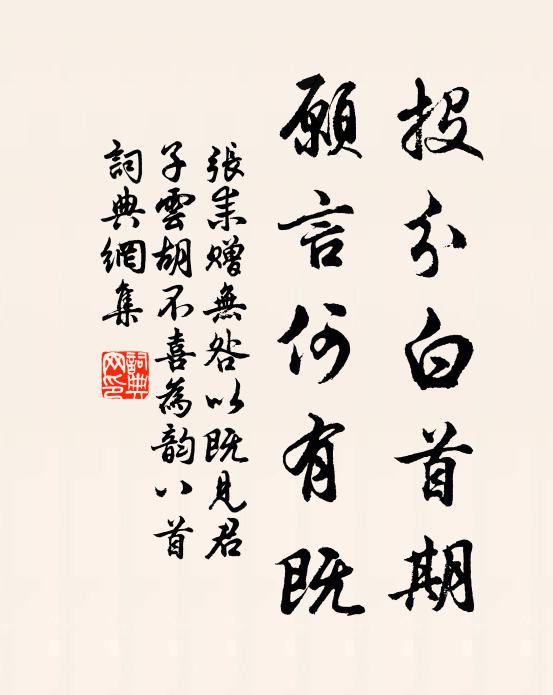 投分白首期
願言何有既
張耒贈無咎以既見君
子雲胡不喜為韵八首
詞典網集
詞典
网印